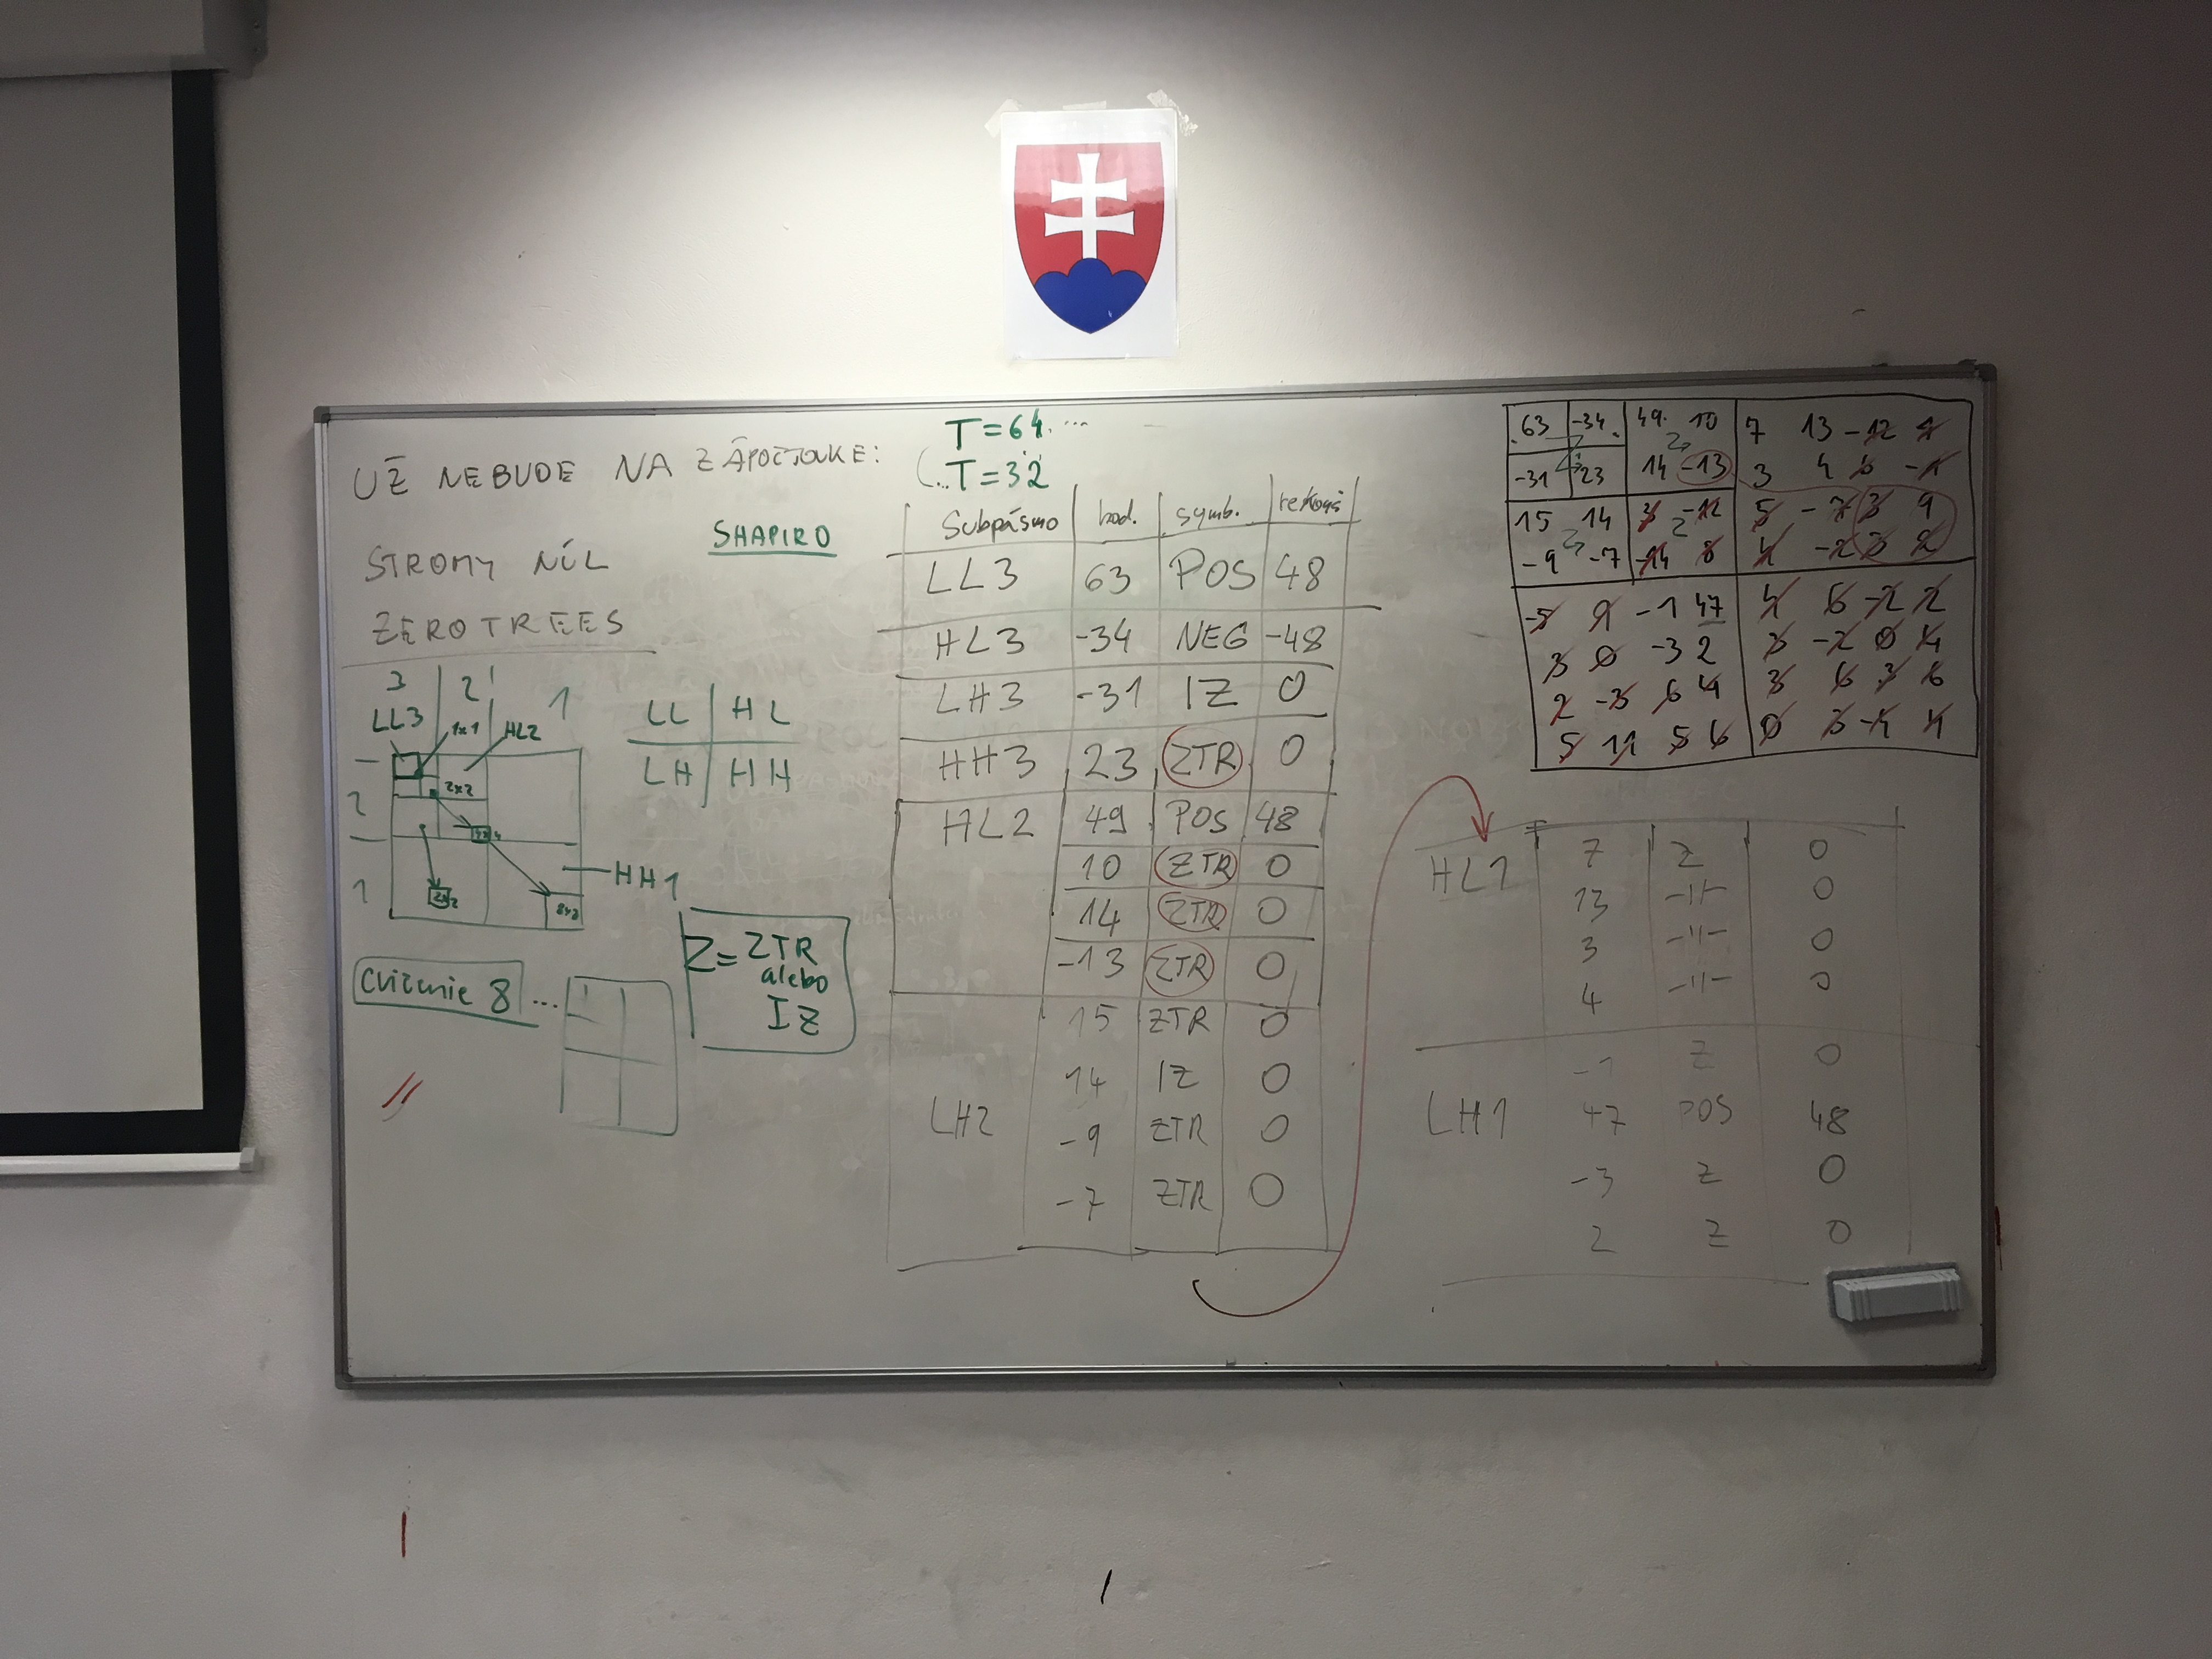 UŽ NEBUDE NA ZÁPOČTOVKE:
STROMY NÚL
ZEROTREES
SHAPIRO
3 2 1
LL3 1x1 HL2
2 2x2
1 HH1
2x2 8x8
LL HL
LH HH
Cvičenie 8 ...
Z = ZTR
alebo
IZ
T=64...
(...T=32
Subpásmo hod. symb.
LL3 63 POS 48
HL3 -34 NEG -48
LH3 -31 IZ 0
HH3 23 ZTR 0
HL2 49 POS 48
10 ZTR 0
14 ZTR 0
-13 ZTR 0
15 ZTR 0
14 IZ 0
LH2 -9 ZTR 0
-7 ZTR 0
63 -34 49 10 7 13 -12 7
-31 23 14 -13 3 4 6 -1
15 14 3 -12 5 -7 3 9
-9 -7 -14 8 4 -2 3 2
-5 9 -1 47 4 6 -2 2
3 0 -3 2 3 -2 0 4
2 -3 6 4 3 6 3 6
5 11 5 6 0 3 -4 4
HL1 7 Z 0
13 -11- 0
3 -11- 0
4 -11- 0
-1 Z 0
LH1 47 POS 48
-3 Z 0
2 Z 0